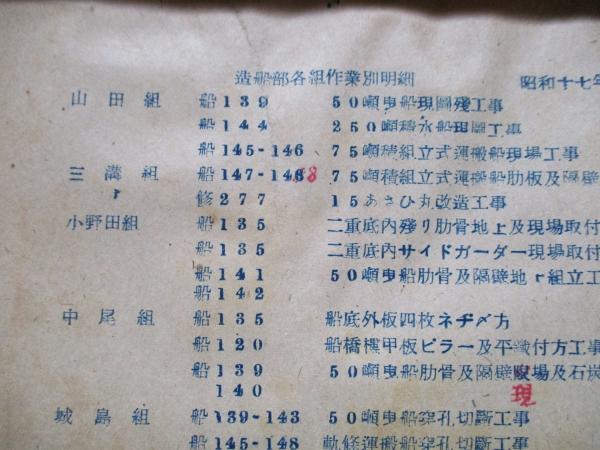 造船部各組作業別明細 昭和十七年
山田組 船139 50噸曳船現圖殘工事
船144 250噸積水船現圖工事
船145-146 75噸積組立式運搬船現場工事
三溝組 船147-148 75噸積組立式運搬船肋板及隔壁
〃 修277 15あさひ丸改造工事
小野田組 船135 二重底內殘リ肋骨地上及現場取付
船135 二重底內サイドガーダー現場取付
船141 50噸曳船肋骨及隔壁地上組立工
船142
中尾組 船135 船底外板四枚ネヂメ方
船120 船橋樓甲板ピラー及平鐵付方工事
船139 50噸曳船肋骨及隔壁現場及石炭
140 現
城島組 船139-143 50噸曳船穿孔切斷工事
船145-148 軌條運搬船穿孔切斷工事